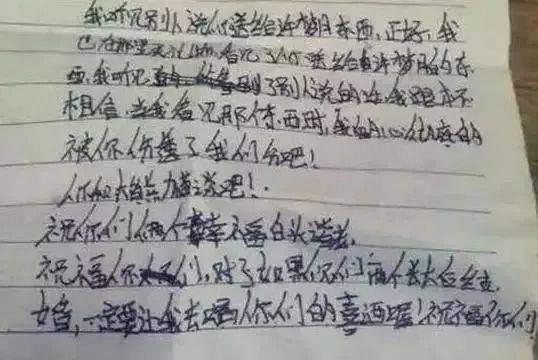 我听见别人说你送给许梦月东西,正好,我
已在那里 看见了你送给许梦月的东
西,我听见 了别人说的话,我跟本不
相信,当我看见那个东西时,我的心 的
被你伤透了我们分吧!
你和大自然力 谈吧!
祝你们俩个幸福白头
祝福你们,对了如果你们两个长大后结
婚,一定要让我去喝你们的喜酒喔!祝福你们